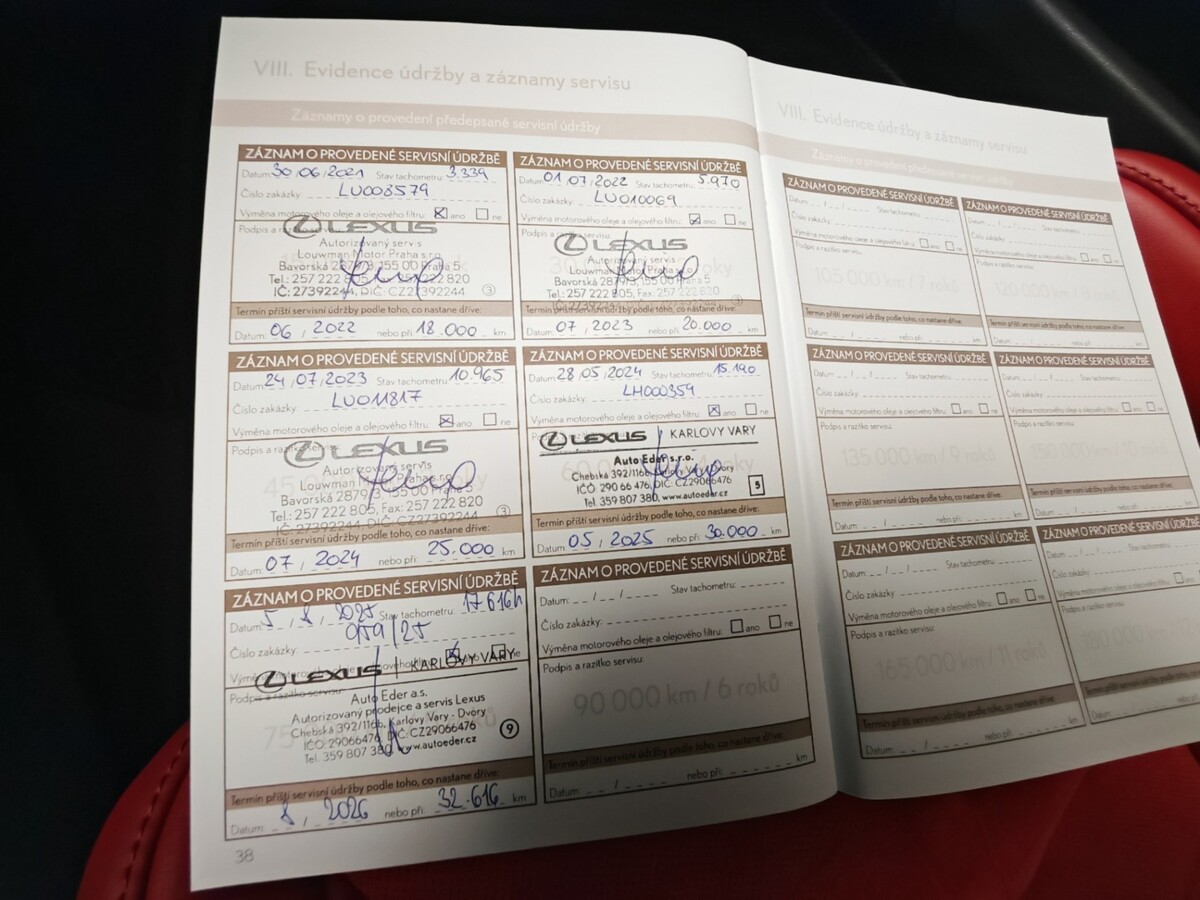 VIII. Evidence údržby a záznamy servisu
Záznamy o provedení předepsané servisní údržby
ZÁZNAM O PROVEDENÉ SERVISNÍ ÚDRŽBĚ
Datum: 30 / 06 / 2021 Stav tachometru: 3.339
Číslo zakázky: LU008579
Výměna motorového oleje a olejového filtru: ☒ ano ☐ ne
Podpis a
LEXUS
Autorizovaný servis
Louwman Motor Praha s.r.o.
Bavorská 2879/3, 155 00 Praha 5
Tel.: 257 222 820
IČ: 27392244, DIČ: CZ27392244 ③
Termín příští servisní údržby podle toho, co nastane dříve:
Datum: 06 / 2022 nebo při: 18.000 km
ZÁZNAM O PROVEDENÉ SERVISNÍ ÚDRŽBĚ
Datum: 01 / 07 / 2022 Stav tachometru: 5.970
Číslo zakázky: LU010069
Výměna motorového oleje a olejového filtru: ☒ ano ☐ ne
Podpis a servisu:
LEXUS
Autorizovaný servis
Louwman Motor Praha s.r.o.
Bavorská 2879/3, 155 00 Praha 5
Tel.: 257 222 805, Fax: 257 222 820
IČ: 27392244, DIČ: CZ27392244 ③
Termín příští servisní údržby podle toho, co nastane dříve:
Datum: 07 / 2023 nebo při: 20.000 km
ZÁZNAM O PROVEDENÉ SERVISNÍ ÚDRŽBĚ
Datum: 24 / 07 / 2023 Stav tachometru: 10.965
Číslo zakázky: LU011817
Výměna motorového oleje a olejového filtru: ☒ ano ☐ ne
Podpis a servisu:
LEXUS
Autorizovaný servis
Louwman Motor Praha s.r.o.
Bavorská 2879/3, 155 00 Praha 5
Tel.: 257 222 805, Fax: 257 222 820
IČ: 27392244, DIČ: CZ27392244 ③
Termín příští servisní údržby podle toho, co nastane dříve:
Datum: 07 / 2024 nebo při: 25.000 km
ZÁZNAM O PROVEDENÉ SERVISNÍ ÚDRŽBĚ
Datum: 28 / 05 / 2024 Stav tachometru: 15.190
Číslo zakázky: LH000354
Výměna motorového oleje a olejového filtru: ☒ ano ☐ ne
LEXUS | KARLOVY VARY
Auto Eder s.r.o.
Chebská 392/116b, Karlovy Vary-Dvory
IČO: 290 66 476, DIČ: CZ29066476
Tel. 359 807 380, www.autoeder.cz 5
Termín příští servisní údržby podle toho, co nastane dříve:
Datum: 05 / 2025 nebo při: 30.000 km
ZÁZNAM O PROVEDENÉ SERVISNÍ ÚDRŽBĚ
Datum: 5 / 8 / 2025 Stav tachometru: 17616
Číslo zakázky: 959/25
LEXUS | KARLOVY VARY
Podpis a razítko servisu:
Auto Eder a.s.
Autorizovaný prodejce a servis Lexus
Chebská 392/116b, Karlovy Vary - Dvory
IČO: 29066476, DIČ: CZ29066476
Tel. 359 807 380, www.autoeder.cz ⑨
Termín příští servisní údržby podle toho, co nastane dříve:
Datum: 8 / 2026 nebo při: 32.616 km
ZÁZNAM O PROVEDENÉ SERVISNÍ ÚDRŽBĚ
Datum: _ _ / _ / _ _ _ _ Stav tachometru:
Číslo zakázky:
Výměna motorového oleje a olejového filtru: ☐ ano ☐ ne
Podpis a razítko servisu:
90 000 km / 6 roků
Termín příští servisní údržby podle toho, co nastane dříve:
Datum: _ _ / _ _ _ _ nebo při: km
38
VIII. Evidence údržby a záznamy servisu
ZÁZNAM O PROVEDENÉ SERVISNÍ ÚDRŽBĚ
Datum: _ _ / _ / _ _ _ _ Stav tachometru:
Číslo zakázky:
Výměna motorového oleje a olejového filtru: ☐ ano ☐ ne
Podpis a razítko servisu:
105 000 km / 7 roků
Termín příští servisní údržby podle toho, co nastane dříve:
Datum: _ _ / _ _ _ _ nebo při: km
ZÁZNAM O PROVEDENÉ SERVISNÍ ÚDRŽBĚ
Datum: _ _ / _ / _ _ _ _ Stav tachometru:
Číslo zakázky:
Výměna motorového oleje a olejového filtru: ☐ ano ☐ ne
Podpis a razítko servisu:
120 000 km / 8 roků
Termín příští servisní údržby podle toho, co nastane dříve:
Datum: _ _ / _ _ _ _ nebo při:
ZÁZNAM O PROVEDENÉ SERVISNÍ ÚDRŽBĚ
Datum: _ _ / _ / _ _ _ _ Stav tachometru:
Číslo zakázky:
Výměna motorového oleje a olejového filtru: ☐ ano ☐ ne
Podpis a razítko servisu:
135 000 km / 9 roků
Termín příští servisní údržby podle toho, co nastane dříve:
Datum: _ _ / _ _ _ _ nebo při: km
ZÁZNAM O PROVEDENÉ SERVISNÍ ÚDRŽBĚ
Datum: _ _ / _ / _ _ _ _ Stav tachometru:
Číslo zakázky:
Výměna motorového oleje a olejového filtru: ☐ ano ☐ ne
Podpis a razítko servisu:
Termín příští servisní údržby podle toho, co nastane dříve:
Datum: _ _ / _ _ _ _ nebo při:
ZÁZNAM O PROVEDENÉ SERVISNÍ ÚDRŽBĚ
Datum: _ _ / _ / _ _ _ _ Stav tachometru:
Číslo zakázky:
Výměna motorového oleje a olejového filtru: ☐ ano ☐ ne
Podpis a razítko servisu:
165 000 km / 11 roků
Termín příští servisní údržby podle toho, co nastane dříve:
Datum: _ _ / _ _ _ _ nebo při: km
ZÁZNAM O PROVEDENÉ SERVISNÍ
Datum: _ _ / _ / _ _ _ _ Stav tachometru:
Číslo zakázky:
Výměna motorového oleje a olejového filtru:
Podpis a razítko servisu:
Termín příští servisní údržby podle toho, co
Datum: _ _ / _ _ _ _ nebo při: